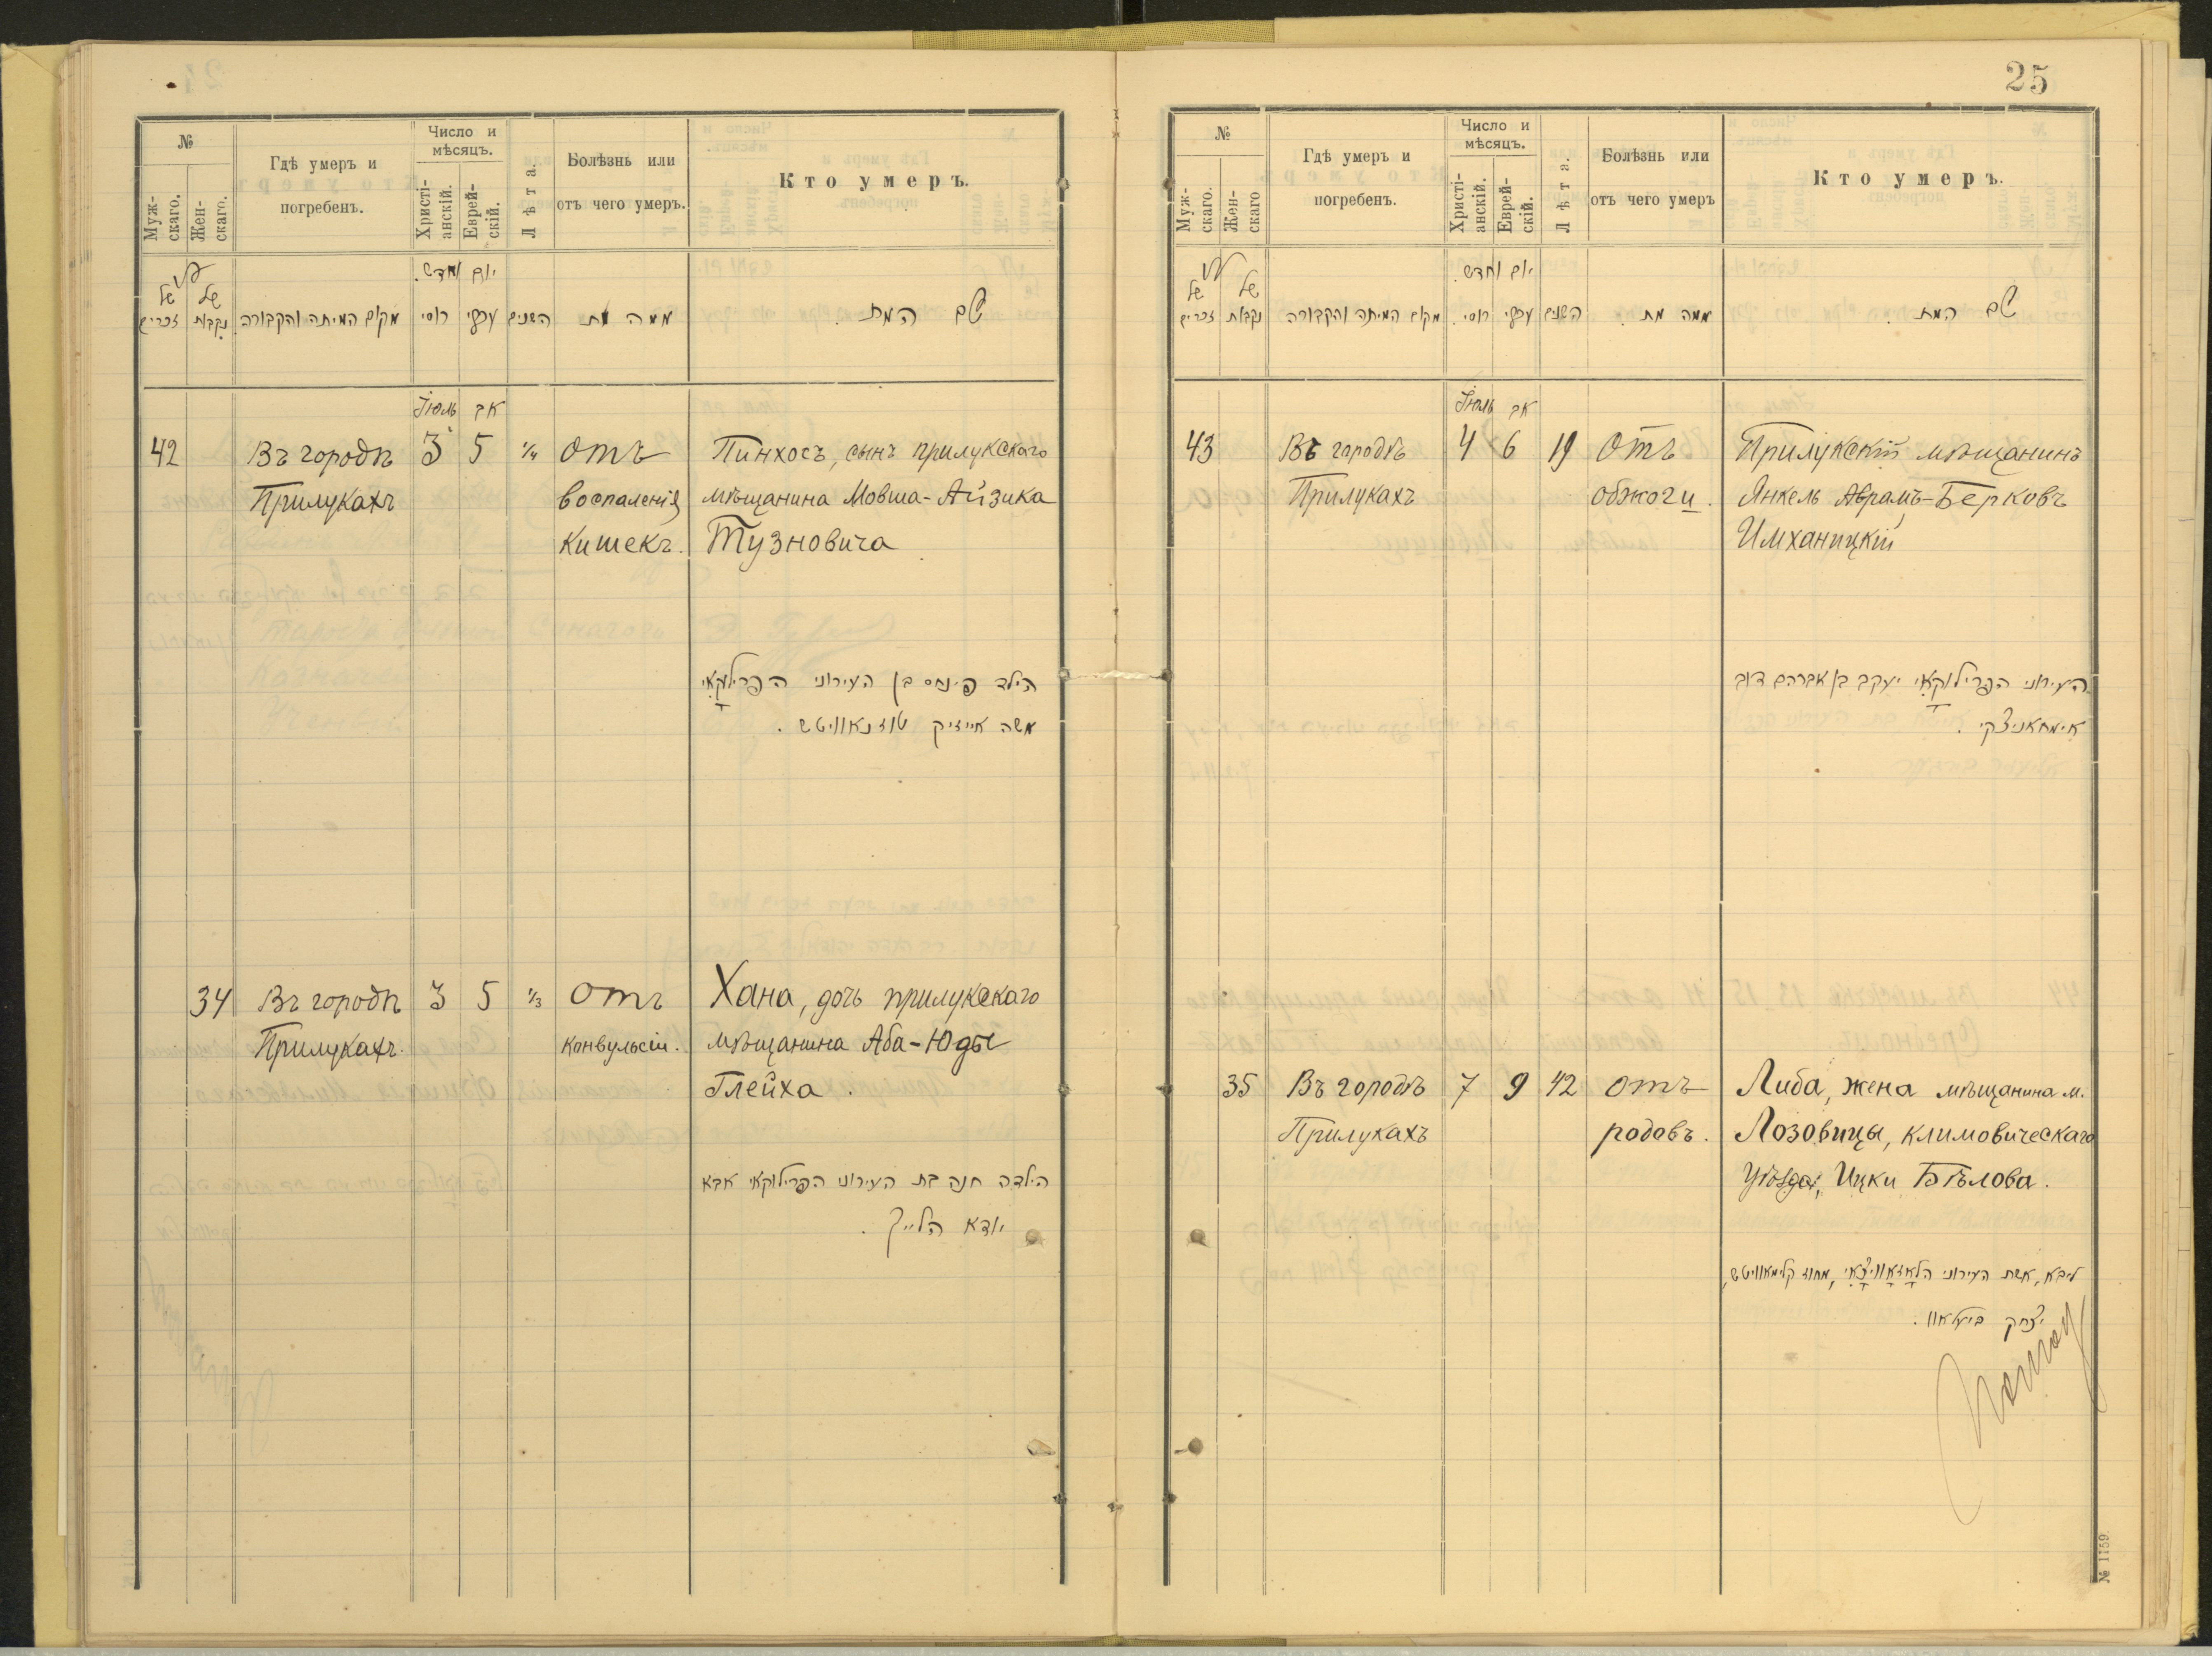 №
Муж-
скаго.
Жен-
скаго.
Гдѣ умеръ и
погребенъ.
Число и
мѣсяцъ.
Христі-
анскій.
Еврей-
скій.
Лѣта.
Болѣзнь или
отъ чего умеръ.
Кто умеръ.
של זכרים
של נקבות
מקום המיתה והקבורה
יום וחדש.
רוסי
עברי
השנים
ממה מת
שם המת.
Іюль אב
42 Въ городѣ 3 5 1/4 Отъ Пинхосъ, сынъ прилукскаго
Прилукахъ воспаленія мѣщанина Мовша-Айзика
кишекъ. Тузновича
הילד פינחס בן העירוני הפרילוקאי
משה אייזיק טוזנאוויטש.
34 Въ городѣ 3 5 1/3 Отъ Хана, дочь прилукскаго
Прилукахъ. конвульсіи. мѣщанина Аба-Юды
Глейха.
הילדה חנה בת העירוני הפרילוקאי אבא
יודא הלייך.
25
№
Муж-
скаго.
Жен-
скаго
Гдѣ умеръ и
погребенъ.
Число и
мѣсяцъ.
Христі-
анскій.
Еврей-
скій.
Лѣта.
Болѣзнь или
отъ чего умеръ
Кто умеръ.
של זכרים
של נקבות
מקום המיתה והקבורה
יום וחדש.
רוסי
עברי
השנים
ממה מת.
שם המת.
Іюль אב
43 Въ городѣ 4 6 19 Отъ Прилукскій мѣщанинъ
Прилукахъ обжоги. Янкель Аврамъ-Берковъ
Имханицкій
העירוני הפרילוקאי יעקב בן אברהם דוב
אימחאניצקי.
35 Въ городѣ 7 9 42 отъ Либа, жена мѣщанина м.
Прилукахъ родовъ. Лозовицы, климовическаго
уѣзда, Ицки Бѣлова.
ליבא, אשת העירוני הלאזאוויצאי, מחוז קלימאוויטש,
יצחק ביעלאוו.
№ 1159.